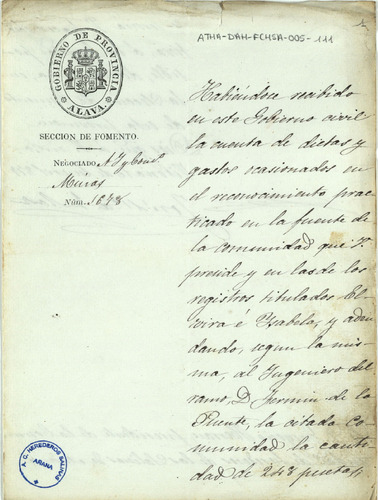 ATHA-DAH-FCHSA-005-111
GOBIERNO DE PROVINCIA
ALAVA.
SECCION DE FOMENTO.
NEGOCIADO
Minas
Núm. 1678
Habiéndose recibido
en este Gobierno civil
la cuenta de dietas y
gastos ocasionados en
el reconocimiento prac
ticado en la fuente de
la comunidad que V.
preside y en las de los
registros titulados El
vira é Ysabela, y adeu
dando, segun la mis
ma, al Yngeniero del
ramo, D. Fermin de la
Puente, la citada Co
munidad la canti
dad de 248 pesetas
A.C. HEREDEROS SALINAS
AÑANA